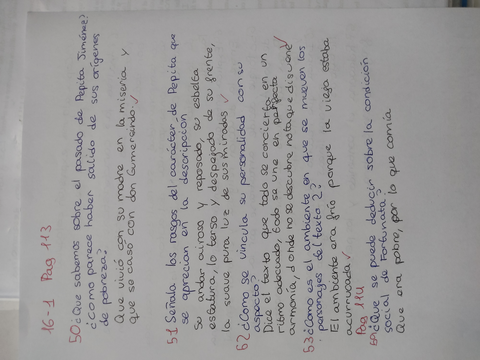 16-1 Pag 113
50 ¿Que sabemos sobre el pasado de Pepita Jiménez?
¿Como parece haber salido de sus orígenes
de pobreza?
Que vivió con su madre en la miseria y
que se caso con don Gumersindo.
51 Señala los rasgos del carácter de Pepita que
se aprecian en la descripción
Su andar airoso y reposado, su esbelta
estatura, lo terso y despejado de su frente,
la suave pura luz de sus miradas
52 ¿Como se vincula su personalidad con su
aspecto?
Dice el texto que todo se concierta en un
ritmo adecuado, todo se une en perfecta
armonía, donde no se descubre nota que disuene
53 ¿Cómo es el ambiente en que se mueven los
personajes del texto 2?
El ambiente era frío porque la vieja estaba
acurrucada
Pag 114
54 ¿Que se puede deducir sobre la condición
social de Fortunata?
Que era pobre, por lo que comía